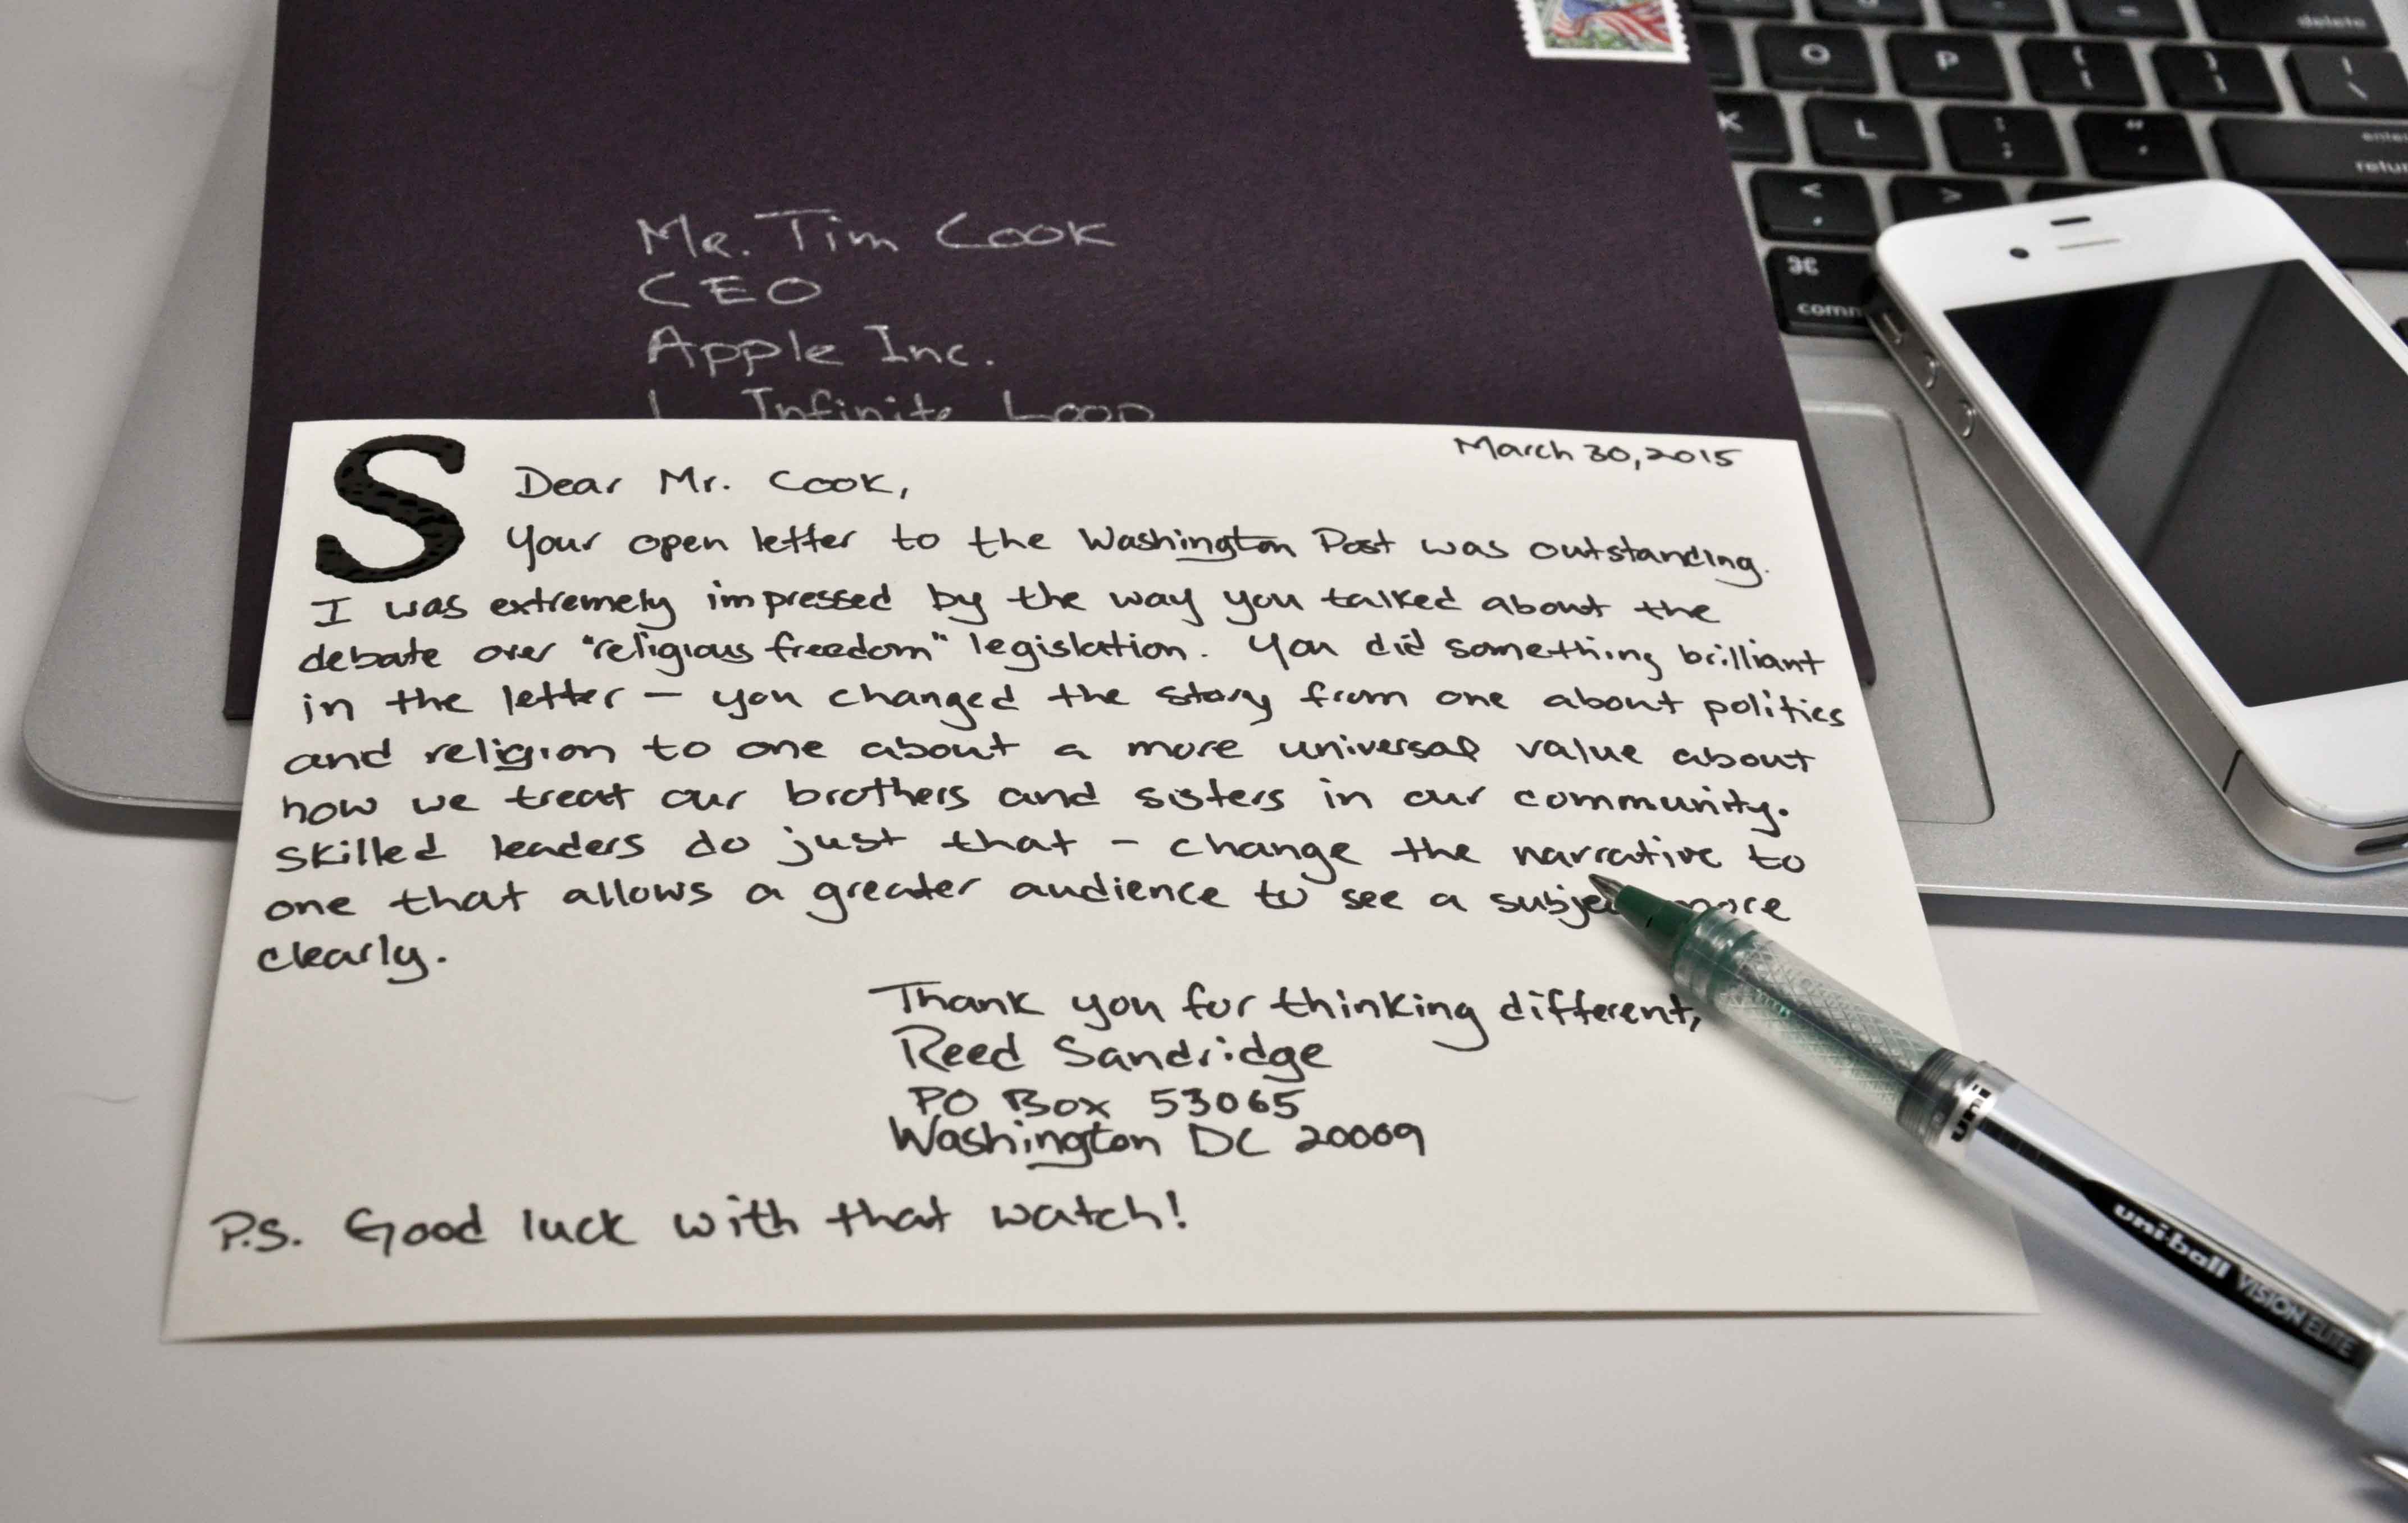 Mr. Tim Cook
CEO
Apple Inc.
1 Infinite Loop
March 30, 2015
S
Dear Mr. Cook,
Your open letter to the Washington Post was outstanding.
I was extremely impressed by the way you talked about the
debate over "religious freedom" legislation. You did something brilliant
in the letter — you changed the story from one about politics
and religion to one about a more universal value about
how we treat our brothers and sisters in our community.
Skilled leaders do just that – change the narrative to
one that allows a greater audience to see a subject more
clearly.
Thank you for thinking different,
Reed Sandridge
PO Box 53065
Washington DC 20009
P.S. Good luck with that watch!
uni
uni-ball VISION ELITE
delete
O P { [ } ] | \
K L : ; " ' enter return
< , >
⌘
comm